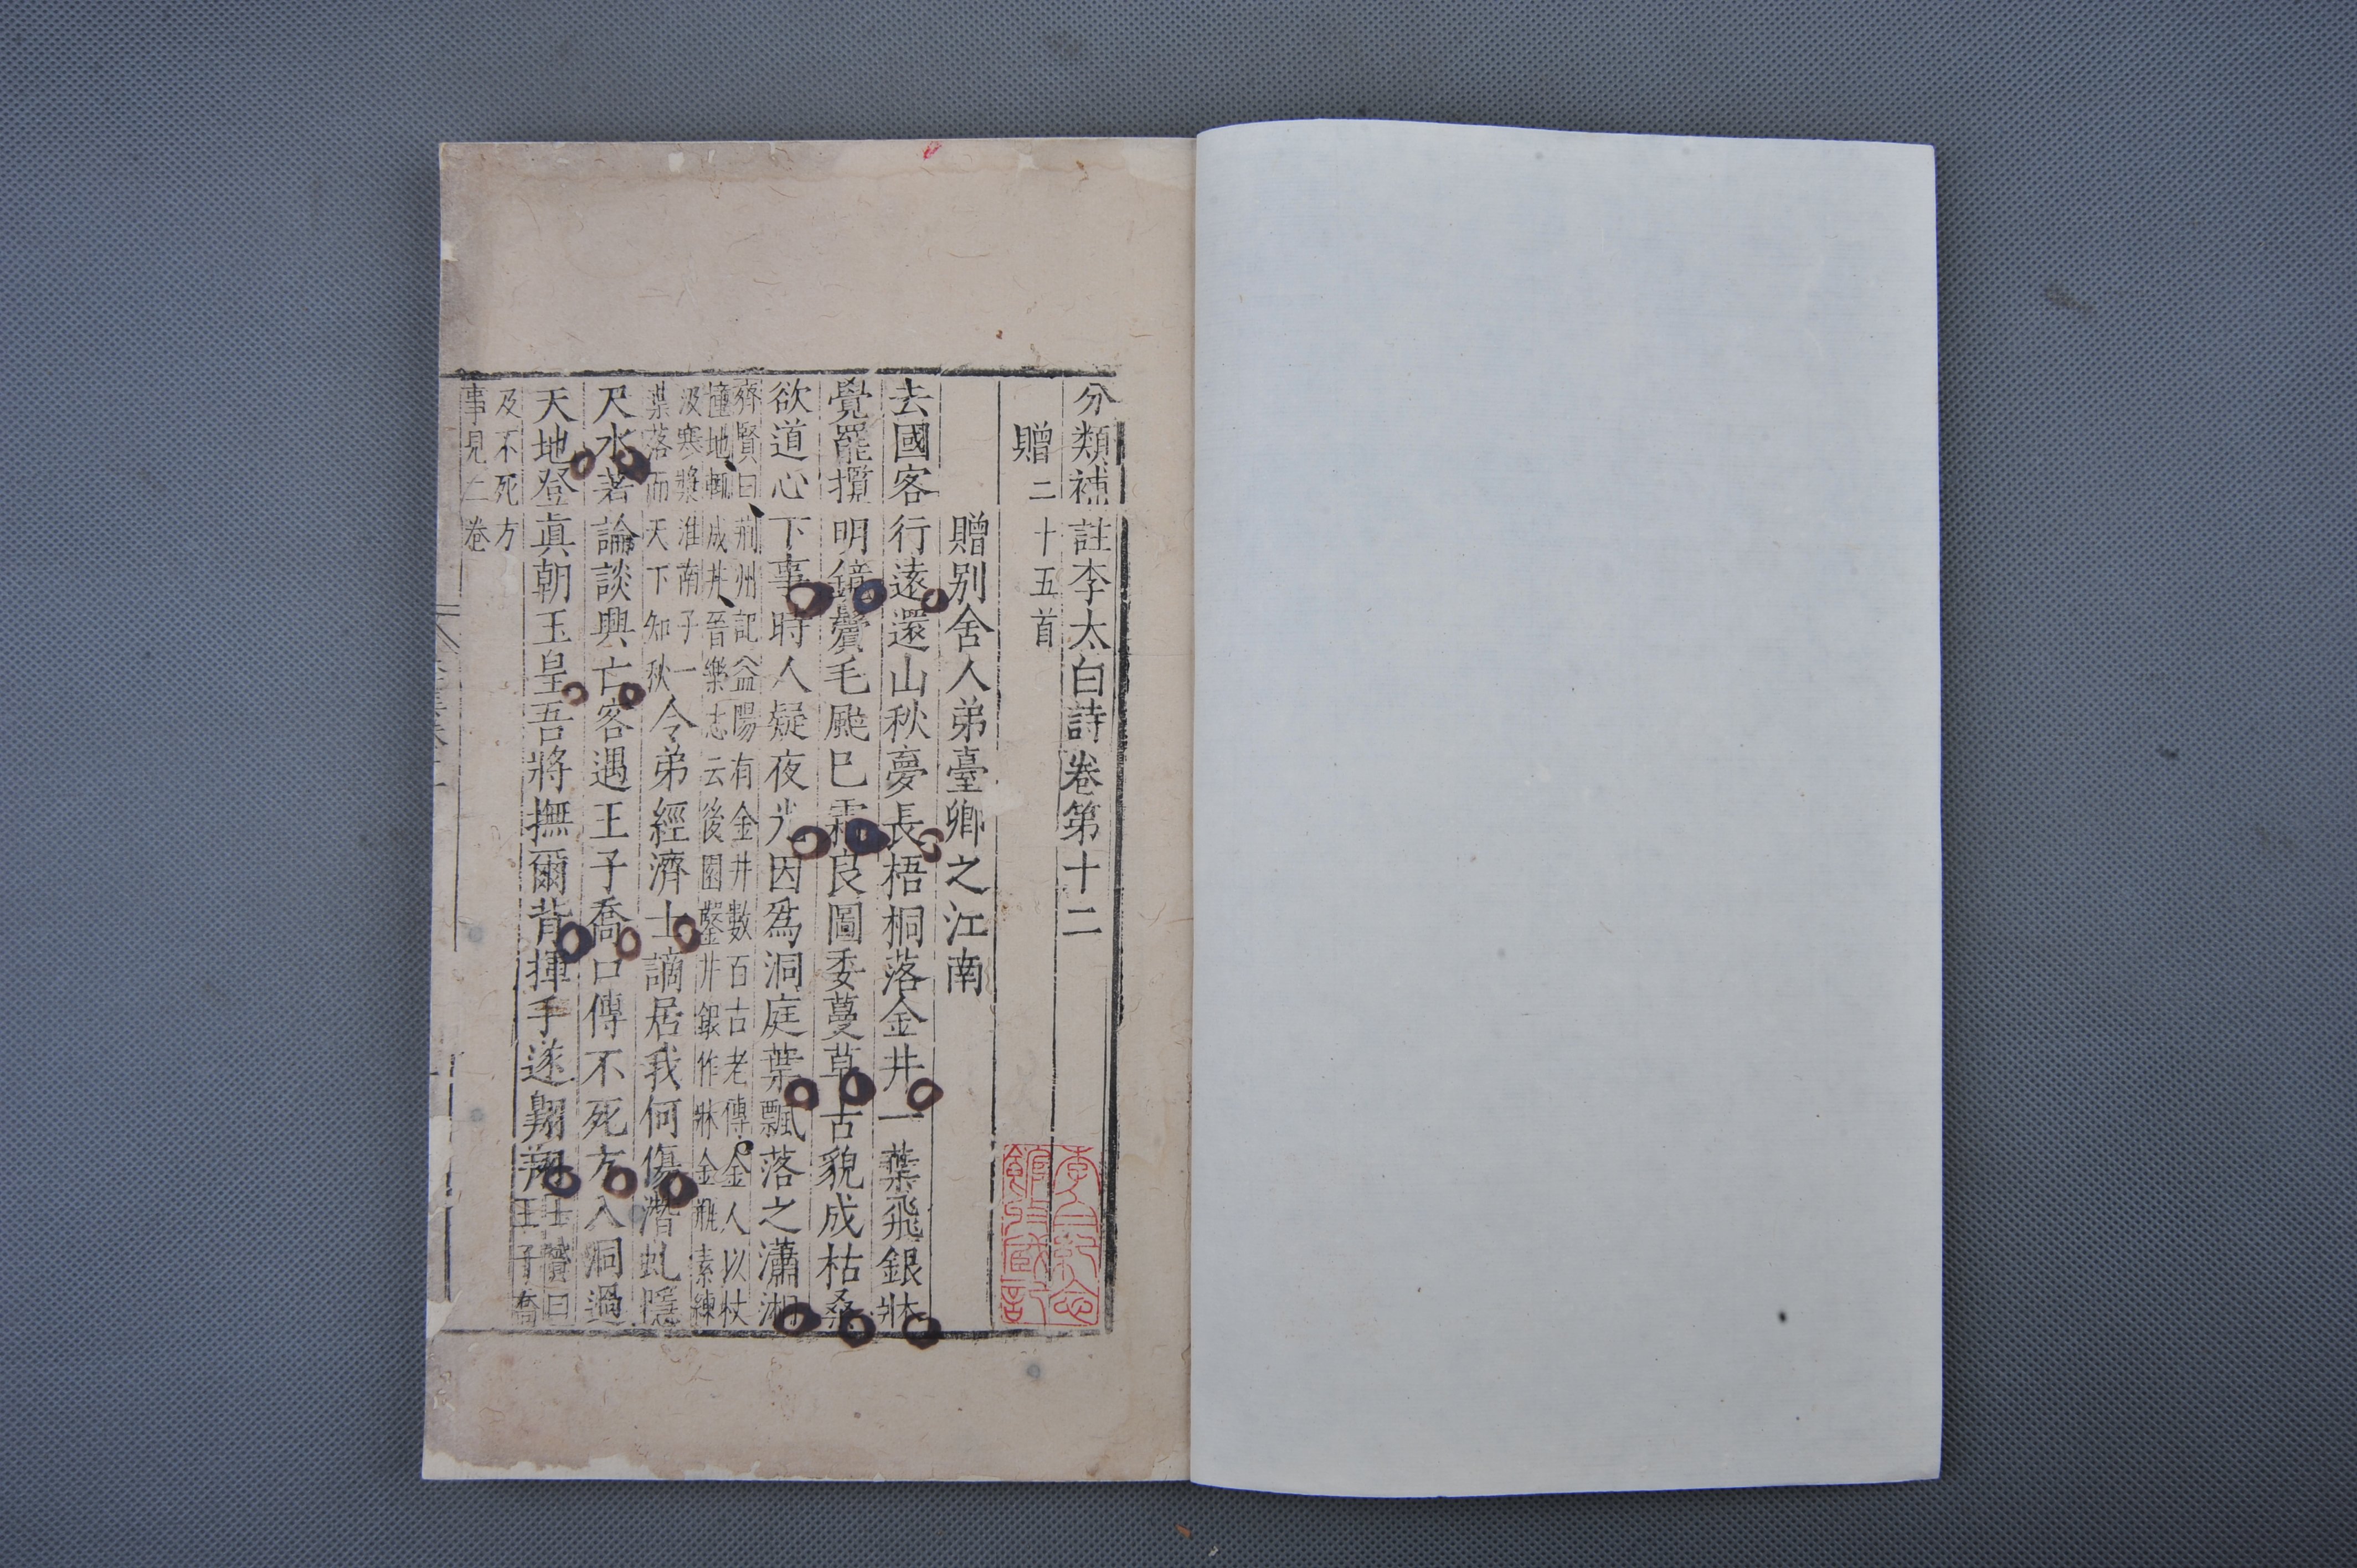 分類補註李太白詩卷第十二
贈二十五首
贈别舍人弟臺卿之江南
去國客行遠還山秋夢長梧桐落金井一葉飛銀牀
覺罷攬明鏡鬢毛颯巳霜良圖委蔓草古貌成枯桑
欲道心下事時人疑夜光因爲洞庭葉飄落之瀟湘
齊賢曰荊州記益陽有金井數百古老傳金人以杖
撞地輙成井晉樂志云後園鑿井銀作牀金瓶素練
汲寒漿淮南子一
葉落而天下知秋
令弟經濟士謫居我何傷潛虬隱
尺水著論談興亡客遇王子喬口傳不死方入洞過
天地登眞朝玉皇吾將撫爾背揮手遂翺翔
士贇曰
王子喬
及不死方
事見二卷